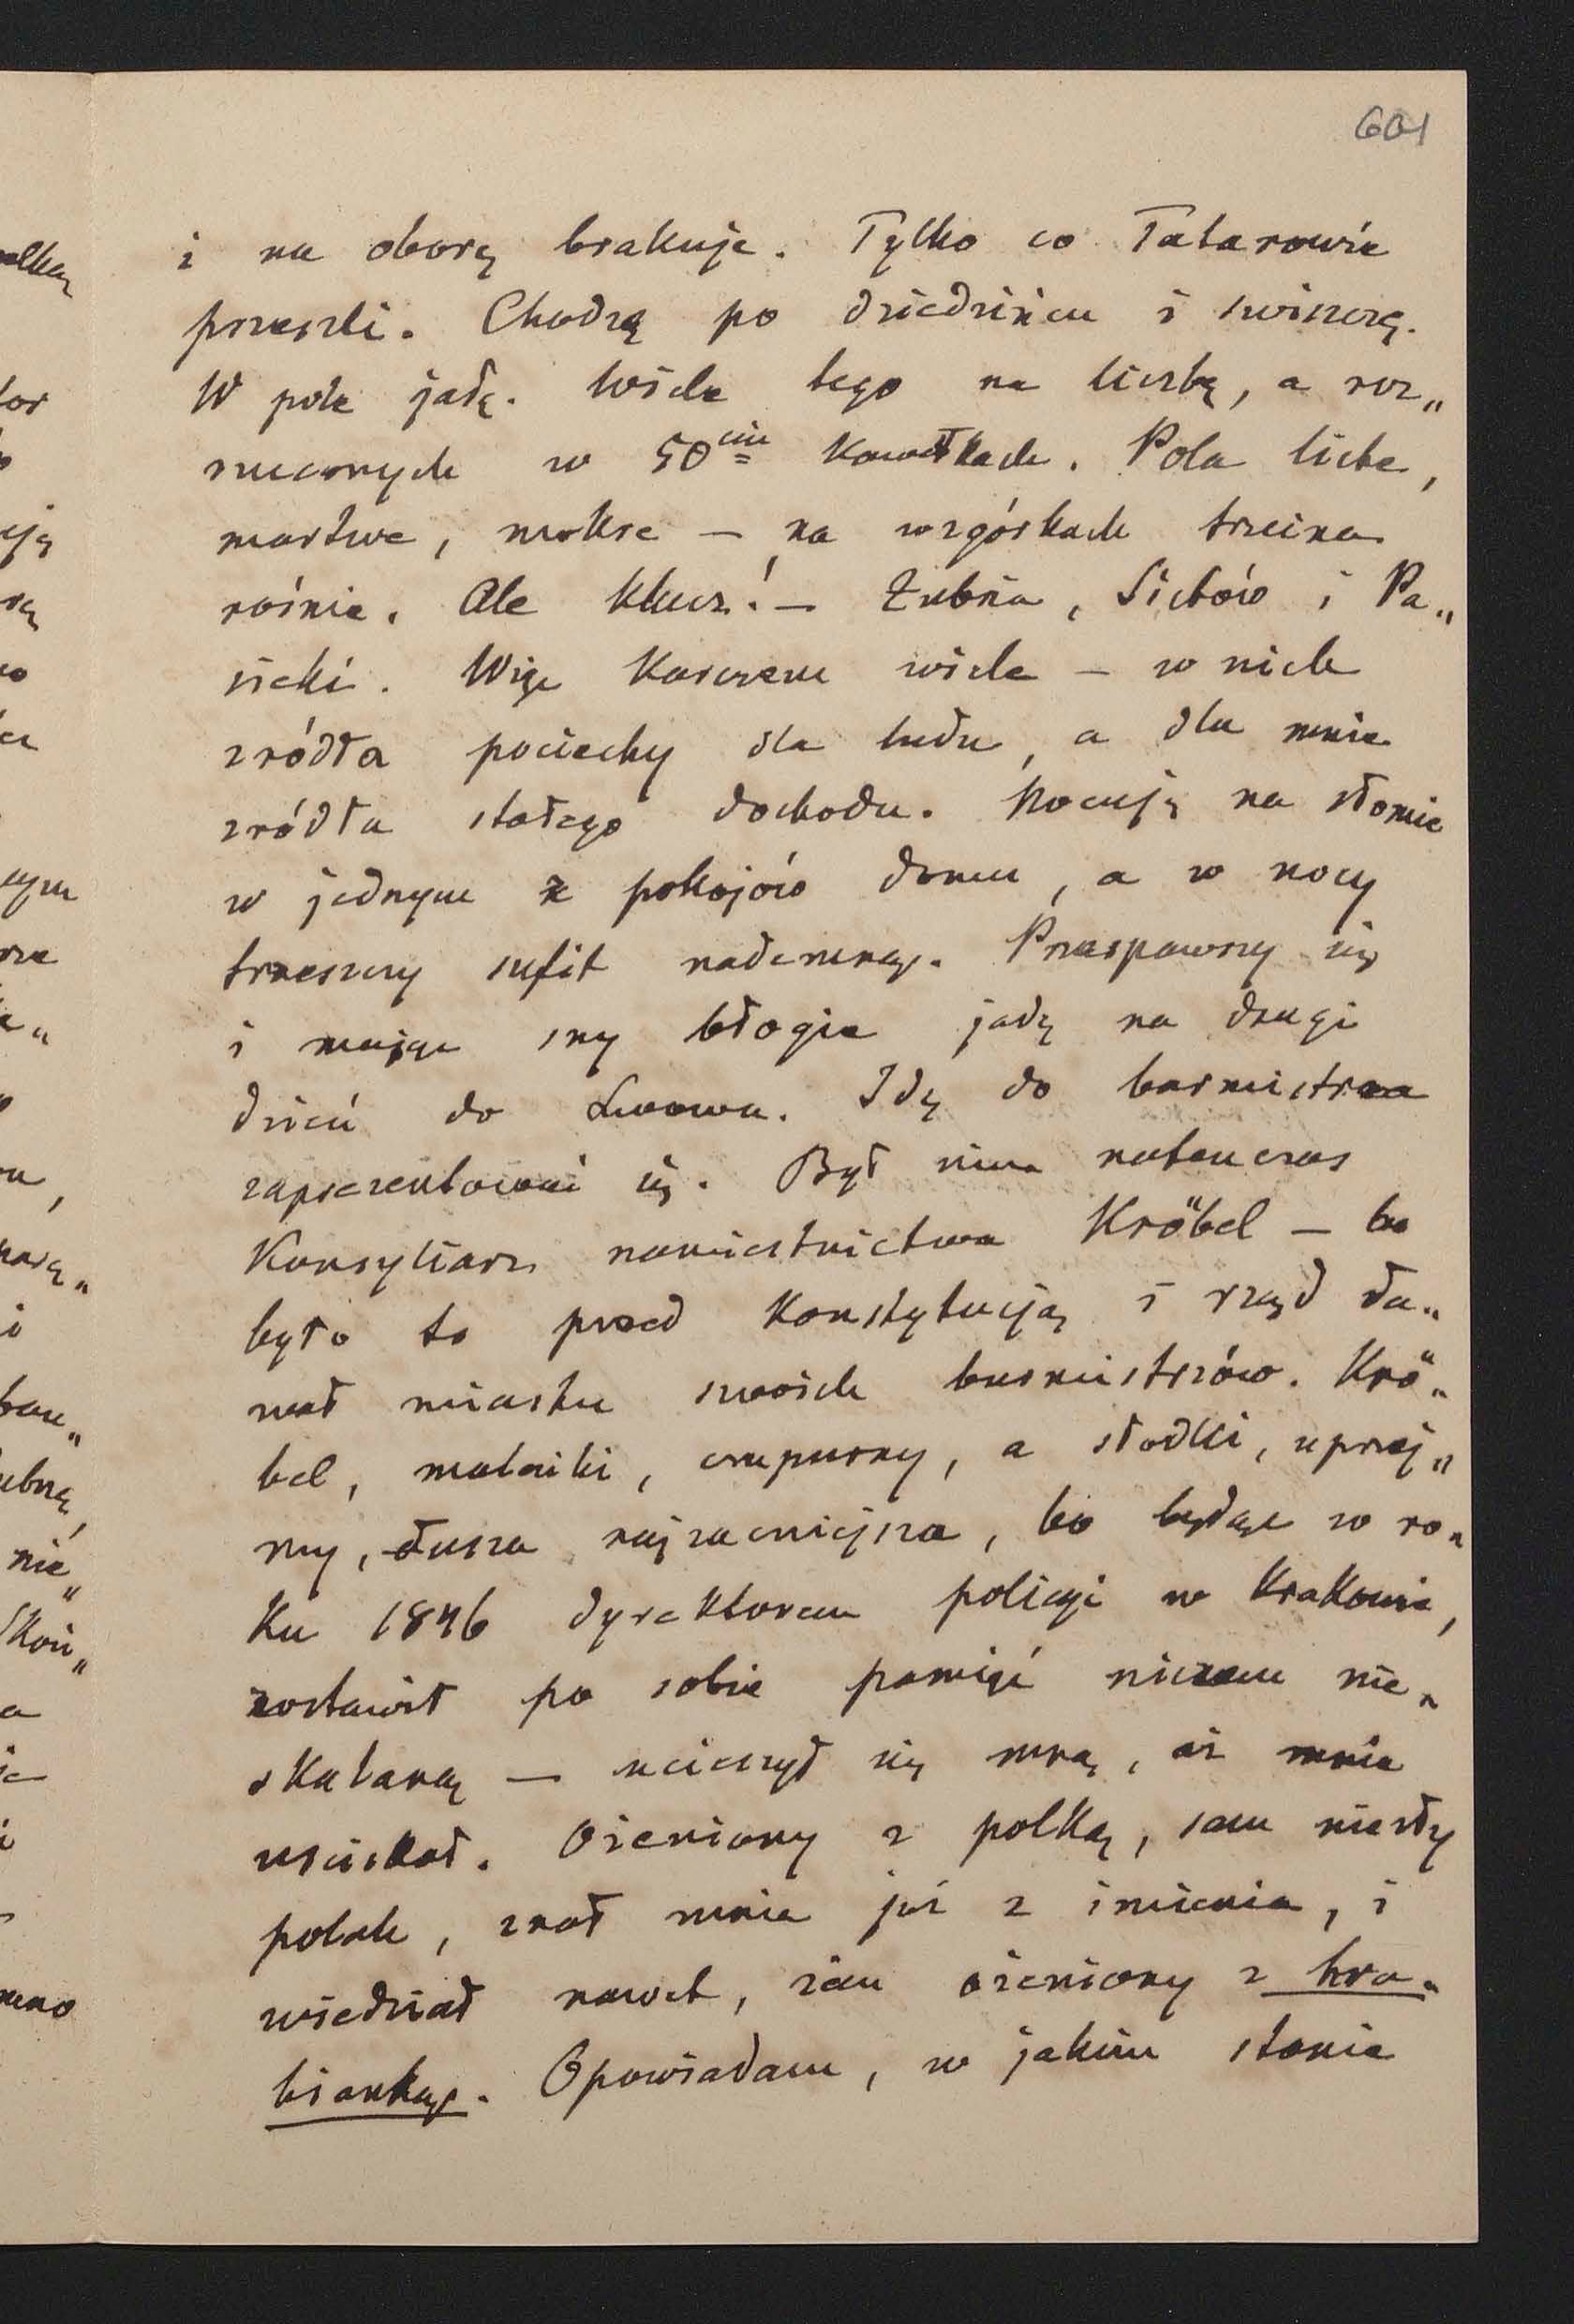 601
i na oborę brakuje. Tylko co Tatarowie
przeszli. Chodzą po dziedzińcu i swiszczę.
W pole jadę. Wiele tego na liczbę, a roz„
rzuconych w 50ciu kawałkach. Pola liche,
martwe, mokre — na wzgórkach trzcina
rośnie. Ale klucz! — Zubrza, Sichów i Pa„
sieki. Więc karczem wiele — w nich
zródła pociechy dla ludu, a dla mnie
zródła stałego dochodu. Nocuję na słomie
w jednym z pokojów domu, a w nocy
trzeszczy sufit nademną. Przespawszy się
i mając sny błogie jadę na drugi
dzień do Lwowa. Idę do burmistrza
zaprezentować się. Był nim natenczas
Konsyliarz namiestnictwa Kröbel — bo
było to przed Konstytucją i rząd da„
wał miastu swoich burmistrzów. Krö„
bel, malutki, czupurny, a słodki, uprzej„
my, dusza najzacniejsza, bo będąc w ro„
ku 1846 dyrektorem policyi w Krakowie,
zostawił po sobie pamięć niczem nie„
skalaną — ucieszył się mną, aż mnie
uściskał. Ożeniony z polką, sam niezły
polak, znał mnie już z imienia, i
wiedział nawet, żem ożeniony z hra„
bianką. Opowiadam, w jakim stanie